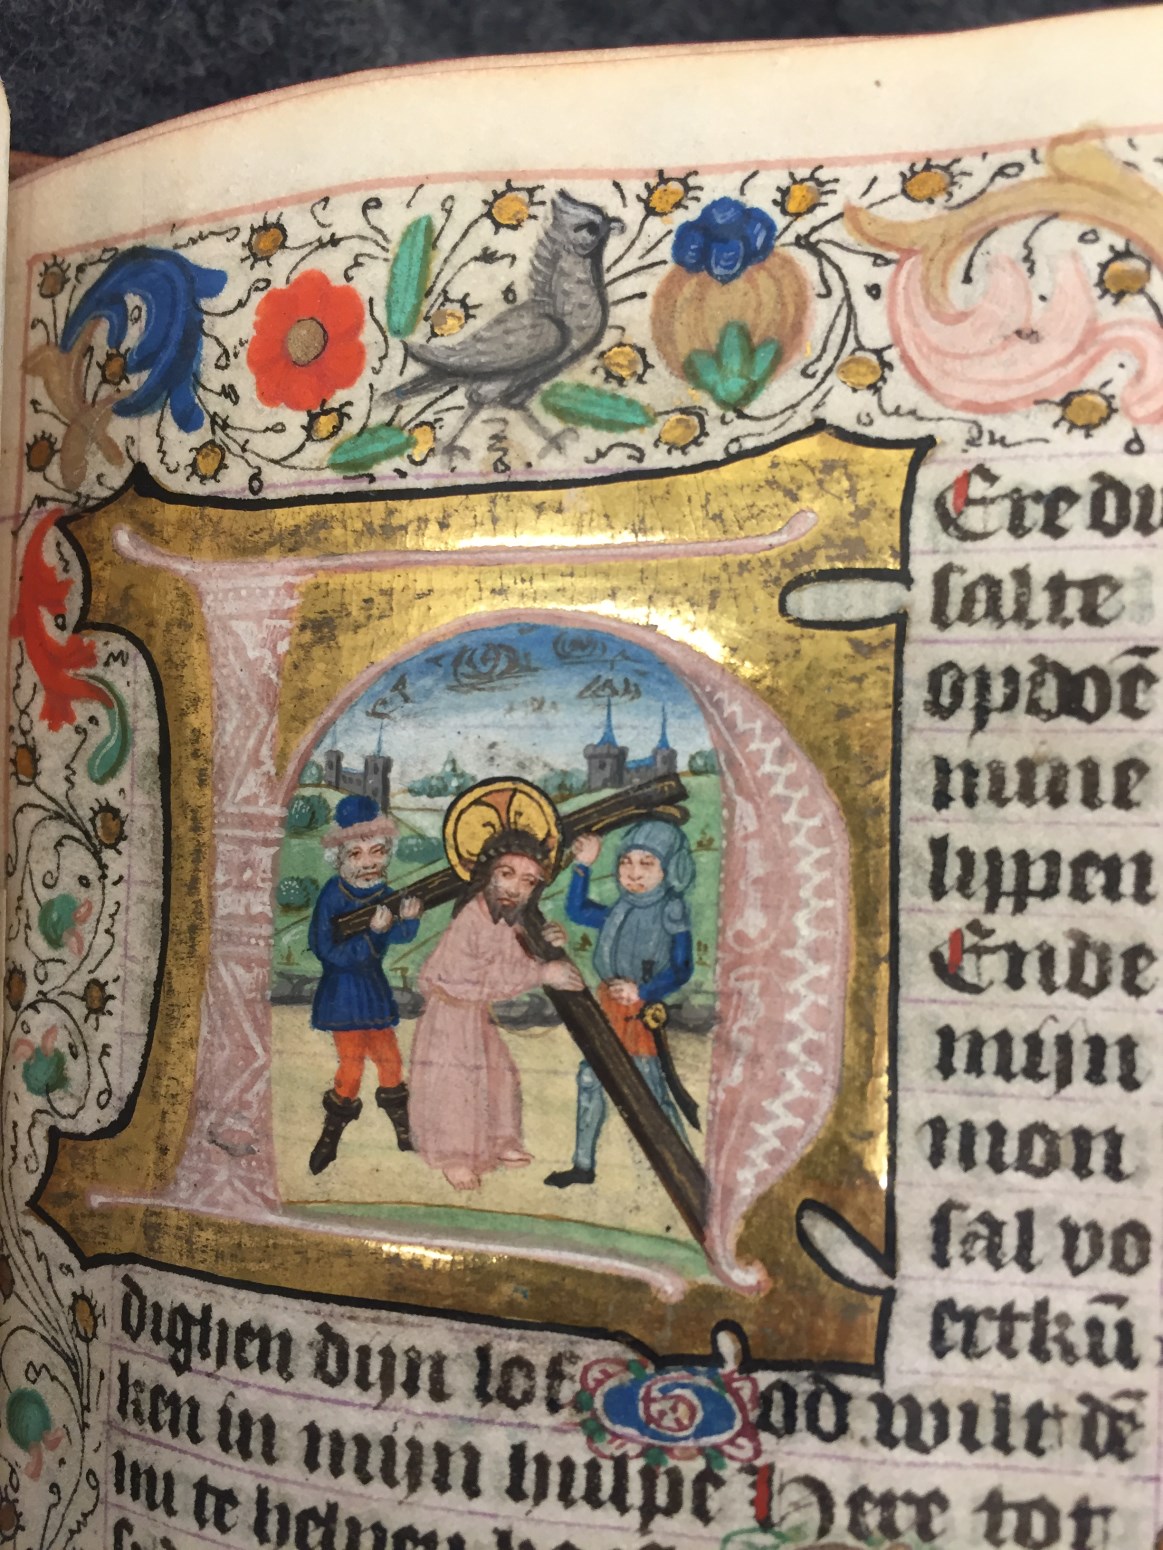 Ere du
salte
opdoē
mine
lippen
Ende
mijn
mon
sal vo
ertkū
dighen dijn lof God wilt dē
ken in mijn hulpe Here tot
mi te helpen